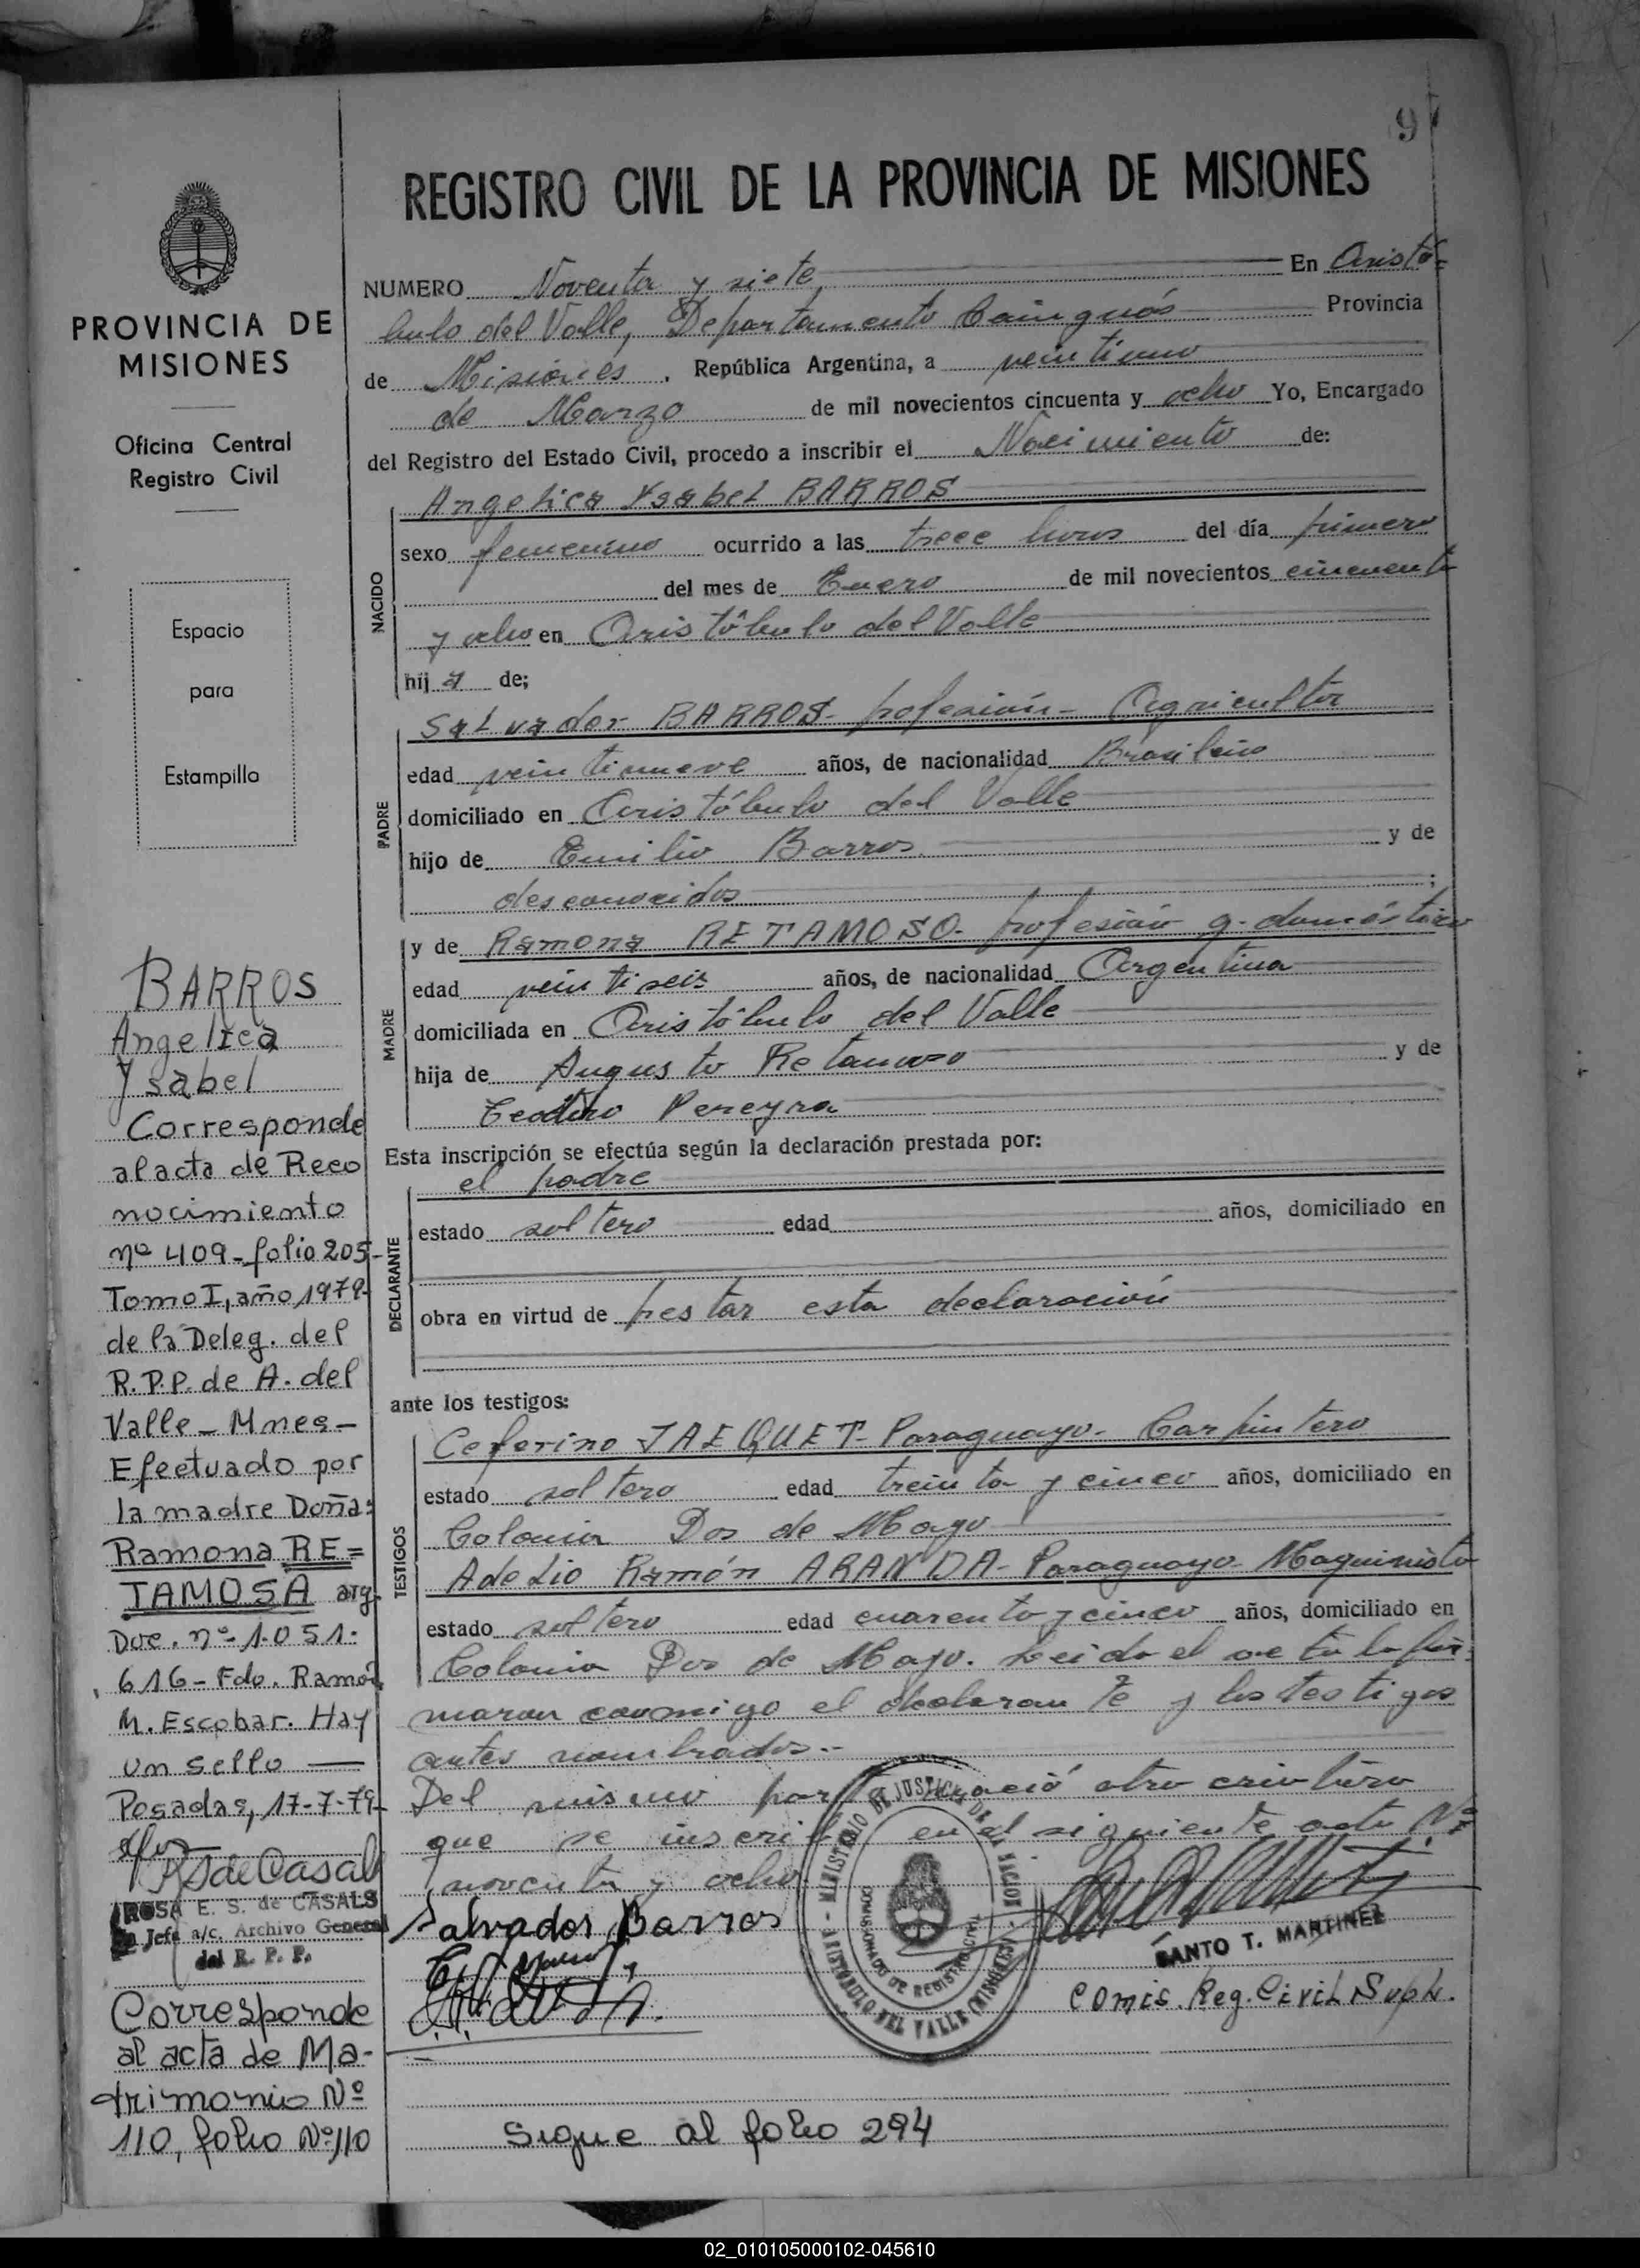 97
REGISTRO CIVIL DE LA PROVINCIA DE MISIONES
PROVINCIA DE
MISIONES
Oficina Central
Registro Civil
Espacio
para
Estampilla
BARROS
Angelica
Ysabel
Corresponde
al acta de Reco
nocimiento
nº 409-folio 205-
Tomo I, año 1979-
de la Deleg. del
R.P.P. de A. del
Valle-Mnes-
Efectuado por
la madre Doña:
Ramona RE=
TAMOSA arg.
Doc. nº 1.051.
616-Fdo. Ramón
M. Escobar. Hay
un sello —
Posadas, 17-7-79-
RSdeCasals
ROSA E. S. de CASALS
Jefa a/c. Archivo General
del R. P. P.
Corresponde
al acta de Ma-
trimonio Nº
110, folio Nº110
NUMERO Noventa y siete, En Aristó=
bulo del Valle, Departamento Cainguás Provincia
de Misiones, República Argentina, a veintiuno
de Marzo de mil novecientos cincuenta y ocho Yo, Encargado
del Registro del Estado Civil, procedo a inscribir el Nacimiento de:
NACIDO
Angelica Ysabel BARROS
sexo femenino ocurrido a las trece horas del día primero
del mes de Enero de mil novecientos cincuenta
y ocho en Aristóbulo del Valle
hija de;
PADRE
Salvador BARROS- profesión- Agricultor
edad veintinueve años, de nacionalidad Brasileño
domiciliado en Aristóbulo del Valle
hijo de Emilio Barros y de
desconocidos ;
MADRE
y de Ramona RETAMOSO- profesión q. doméstico
edad veintiseis años, de nacionalidad Argentina
domiciliada en Aristóbulo del Valle
hija de Augusto Retamozo y de
Pereyra
Esta inscripción se efectúa según la declaración prestada por:
DECLARANTE
el padre
estado soltero edad años, domiciliado en
obra en virtud de prestar esta declaración
ante los testigos:
TESTIGOS
Ceferino JAEQUET- Paraguayo- Carpintero
estado soltero edad treinta y cinco años, domiciliado en
Colonia Dos de Mayo
Adelio Ramón ARANDA- Paraguayo- Maquinista
estado soltero edad cuarenta y cinco años, domiciliado en
Colonia Dos de Mayo. Leida el acta la fir-
maran conmigo el declarante y los testigos
antes nombrados.-
Del mismo parto nació otra criatura
que se inscribe en el siguiente acta Nº
noventa y ocho
Salvador Barros
MINISTERIO DE JUSTICIA DE LA NACION - ARISTOBULO DEL VALLE (MISIONES)
COMISIONADO DE REGISTRO CIVIL
SANTO T. MARTINEZ
Comis. Reg. Civil Suph.
Sigue al folio 294
02_010105000102-045610